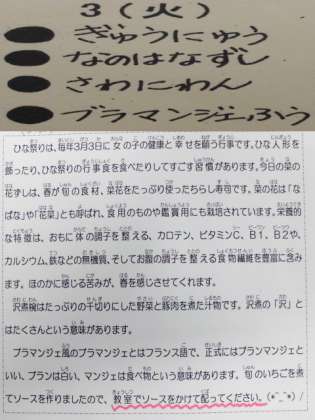 3(火)
●ぎゅうにゅう
●なのはなずし
●さわにわん
●ブラマンジェふう
ひな祭りは、毎年3月3日に女の子の健康と幸せを願う行事です。ひな人形を
飾ったり、ひな祭りの行事食を食べたりしてすごす習慣があります。今日の菜の
花ずしは、春が旬の食材、菜花をたっぷり使ったちらし寿司です。菜の花は「な
ばな」や「花菜」とも呼ばれ、食用のものや鑑賞用にも栽培されています。栄養的
な特徴は、おもに体の調子を整える、カロテン、ビタミンC、B1、B2や、
カルシウム、鉄などの無機質、そしてお腹の調子を整える食物繊維を豊富に含み
ます。ほのかに感じる苦みが、春を感じさせてくれます。
沢煮椀はたっぷりの千切りにした野菜と豚肉を煮た汁物です。沢煮の「沢」と
はたくさんという意味があります。
ブラマンジェ風のブラマンジェとはフランス語で、正式にはブランマンジェと
いい、ブランは白い、マンジェは食べ物という意味があります。旬のいちごを煮
てソースを作りましたので、教室でソースをかけて配ってください。(*^_^*)/